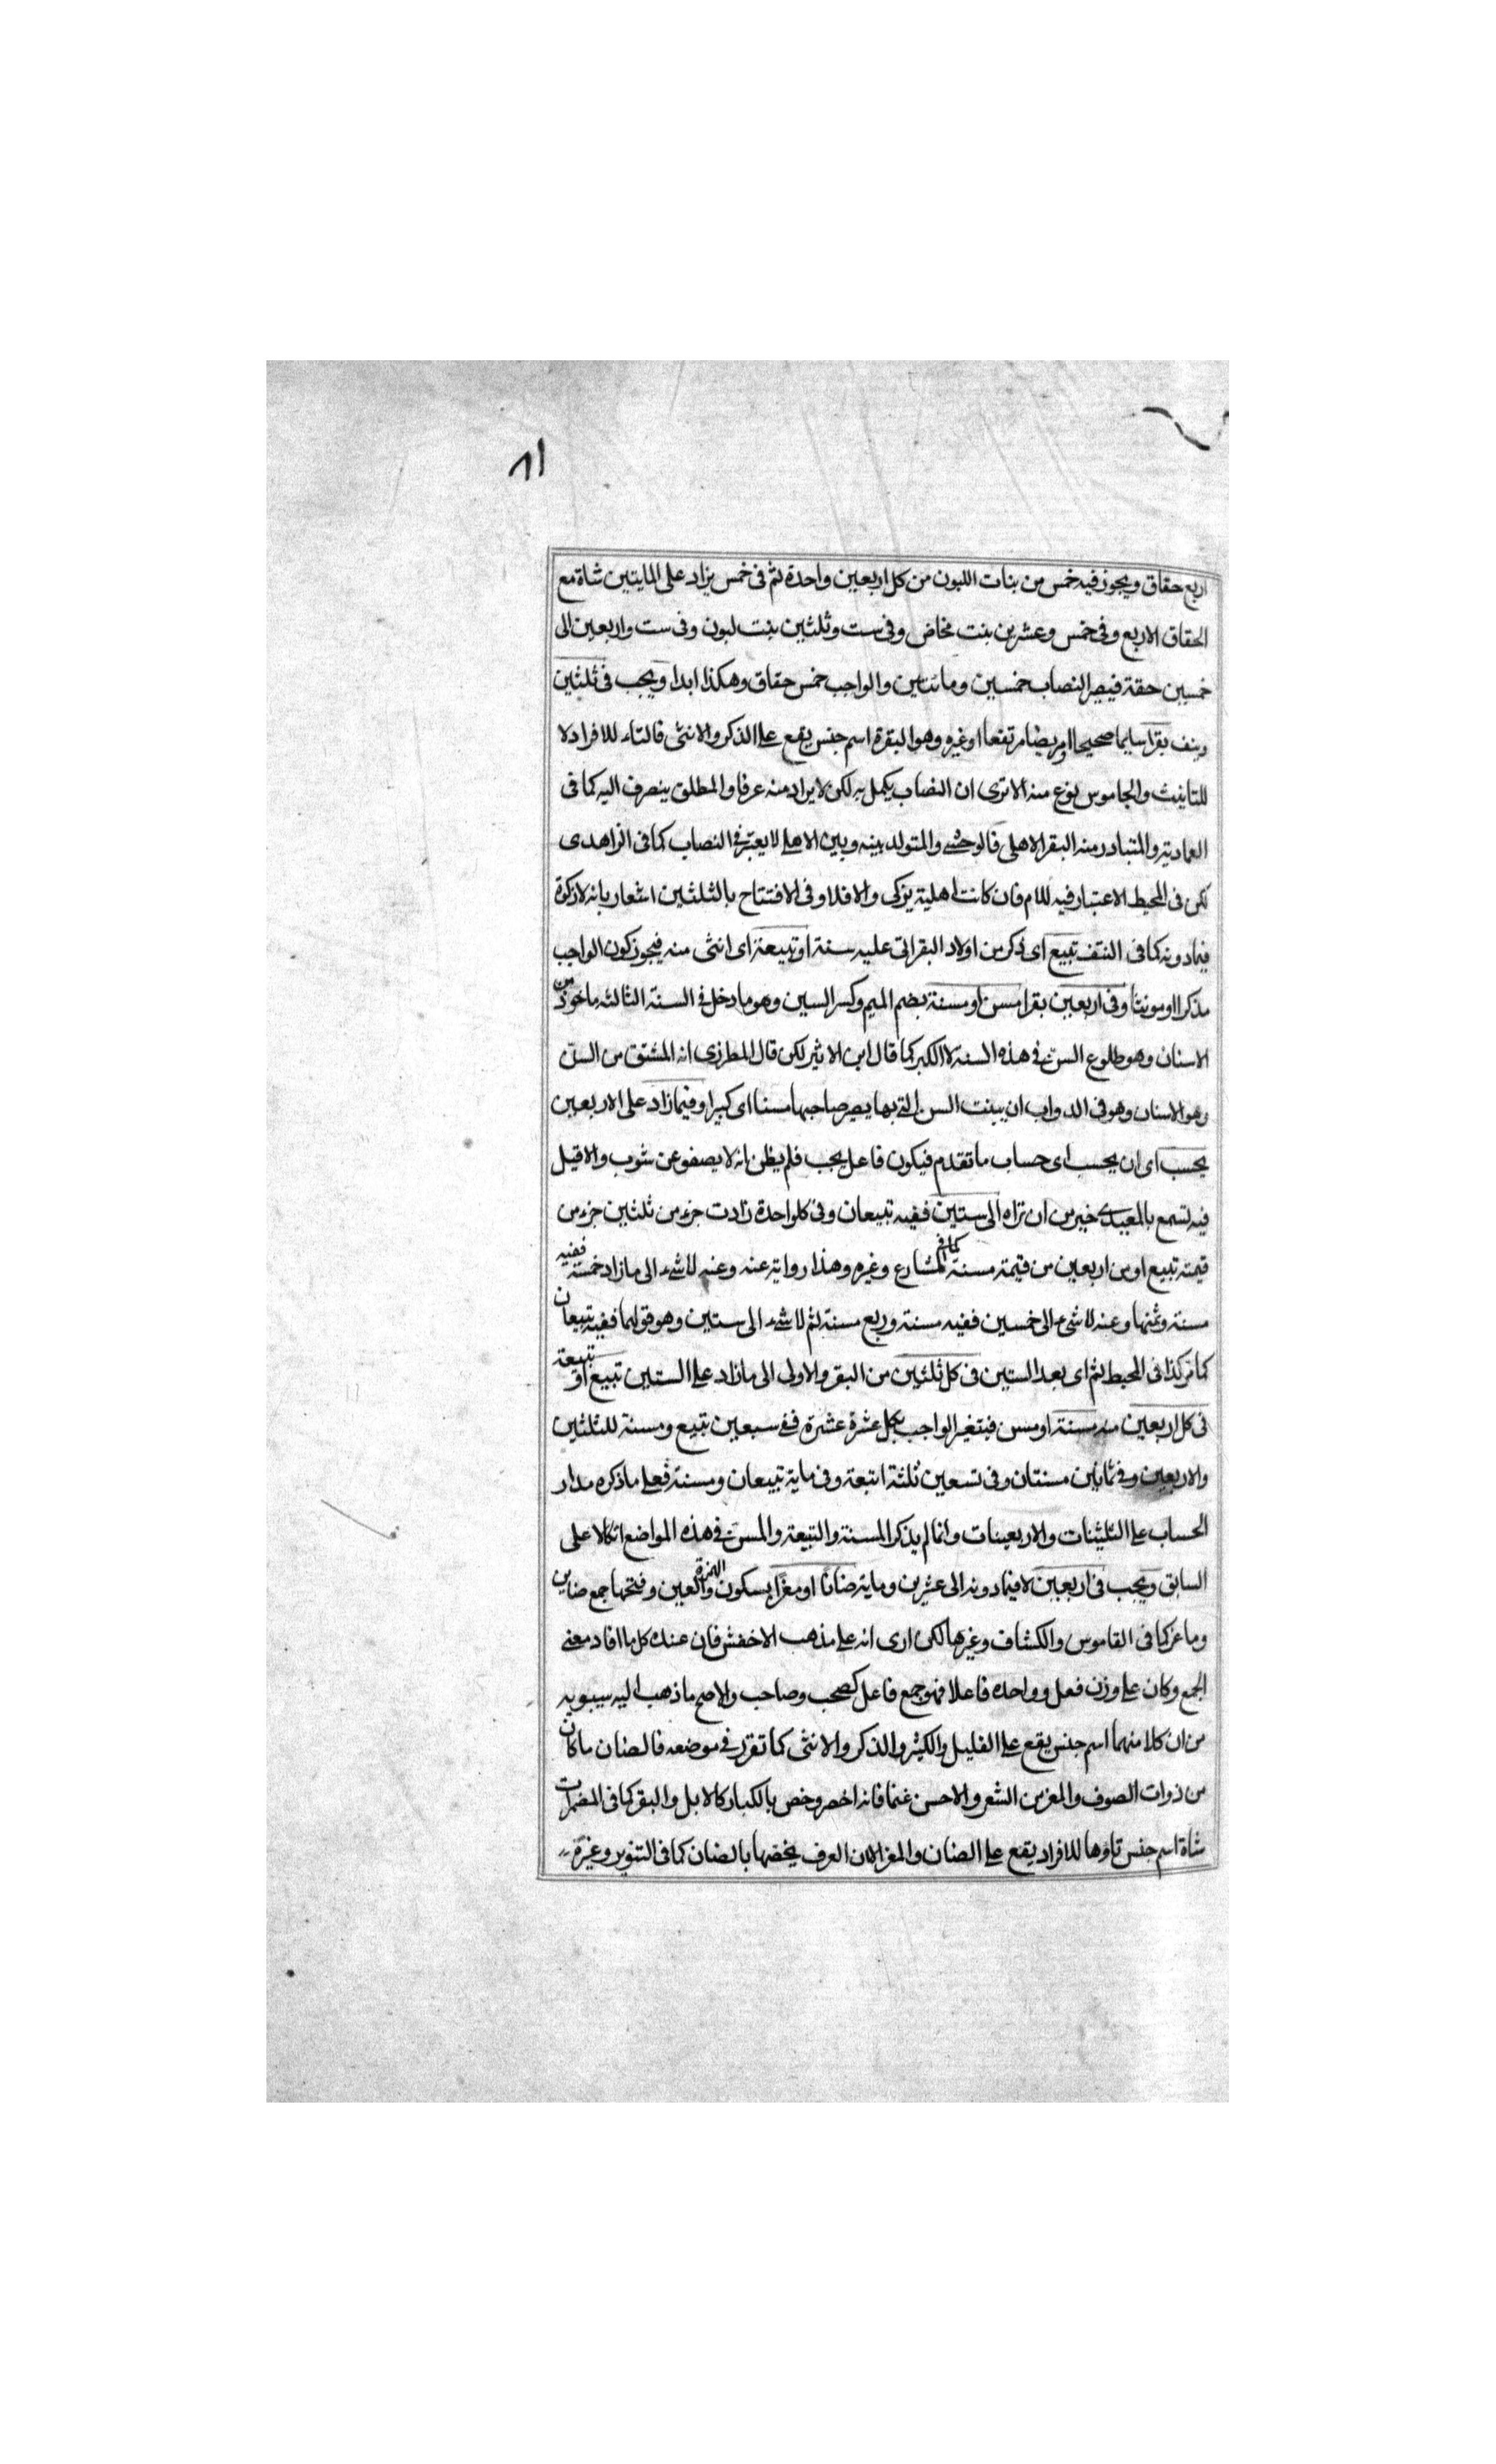 ٨١
اربع حقاق ويجوز فيه خمس من بنات اللبون من كل اربعين واحدة ثم فى خمس يزاد على المايتين شاة مع
الحقاق الاربع وفى خمس وعشرين بنت مخاض وفى ست وثلثين بنت لبون وفى ست واربعين الى
خمسين حقة فيصير النصاب خمسين ومائتين والواجب خمس حقاق وهكذا ابدا ويجب فى ثلثين
ونيف بقرا سليما صحيحا او مريضا مرتفعا او غيره وهو البقرة اسم جنس يقع على الذكر والانثى فالتاء للافراد لا
للتانيث والجاموس نوع منه الا ترى ان النصاب يكمل به لكن لا يراد منه عرفا والمطلق ينصرف اليه كما فى
العمادية والمتبادر منه البقر الاهلى فالوحشى والمتولد بينه وبين الاهلى لا يعتبر فى النصاب كما فى الزاهدى
لكن فى المحيط الاعتبار فيه للام فان كانت اهلية يزكى والا فلا وفى الافتتاح بالثلثين اشعار بانه لا زكوة
فيما دونه كما فى النتف تبيع اى ذكر من اولاد البقر اتى عليه سنة او تبيعة اى انثى منه فيجوز كون الواجب
مذكرا او مونثا وفى اربعين بقرا مسن او مسنة بضم الميم وكسر السين وهو ما دخل فى السنة الثالثه ماخوذ من
الاسنان وهو طلوع السن فى هذه السنة لا الكبر كما قال ابن الاثير لكن قال المطرزى انه المشتق من السن
وهو الاسنان وهو فى الدواب ان ينبت السن التى بها يصير صاحبها مسنا اى كبيرا وفيما زاد على الاربعين
يحسب اى ان يحسب اى حساب ما تقدم فيكون فاعل يجب فلم يظن انه لا يصفو عن شوب والا قيل
فيه تسمع بالمعيدى خير من ان تراه الى ستين ففيه تبيعان وفى كل واحدة زادت جزء من ثلثين جزء من
قيمة تبيع او من اربعين من قيمة مسنة كما فى المشارع وغيره وهذا رواية عنه وعنه لا شىء الى ما زاد خمسة ففيه
مسنة وثمنها وعنه لا شىء الى خمسين ففيه مسنة وربع مسنة ثم لا شىء الى ستين وهو قولهما ففيه تبيعان
كما مر كذا فى المحيط ثم اى بعد الستين فى كل ثلثين من البقر والاولى الى ما زاد على الستين تبيع او تبيعة
فى كل اربعين منه مسنة او مسن فيتغير الواجب بكل عشرة عشرة ففى سبعين تبيع ومسنة للثلثين
والاربعين وفى ثمانين مسنتان وفى تسعين ثلثة اتبعة وفى ماية تبيعان ومسنة فعلى ما ذكره مدار
الحساب على الثلثينات والاربعينات وانما لم يذكر المسنة والتبيعة والمسن فى هذه المواضع اتكالا على
السابق ويجب فى اربعين لا فيما دونه الى عشرين وماية ضانا او معزا بسكون الهمزة والعين وفتحها جمع ضاين
وماعز كما فى القاموس والكشاف وغيرها لكن ارى انه على مذهب الاخفش فان عنده كل ما افاد معنى
الجمع وكان على وزن فعل وواحده فاعلا فهو جمع فاعل كصحب وصاحب والاصح ما ذهب اليه سيبويه
من ان كلا منهما اسم جنس يقع على القليل والكثير والذكر والانثى كما تقرر فى موضعه فالضان ما كان
من ذوات الصوف والمعز من الشعر والاحسن غنما فانه اخصر وخص بالكبار كالابل والبقر كما فى المضمرات
شاة اسم جنس تاؤها للافراد يقع على الضان والمعز الا ان العرف يخصها بالضان كما فى التنوير وغيره